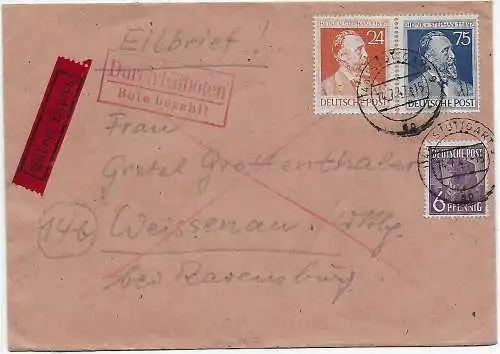 Eilbrief!
HEINRICH v. STEPHAN † 1897
24
DEUTSCHE POST
HEINRICH v. STEPHAN † 1897
75
DEUTSCHE POST
Durch Eilboten
Bote bezahlt
Eilbote Exprès
STUTTGART
Frau
Gretel Grottenthaler
STUTTGART
DEUTSCHE POST
6 PFENNIG
14b
Weissenau / Wttbg.
bei Ravensburg